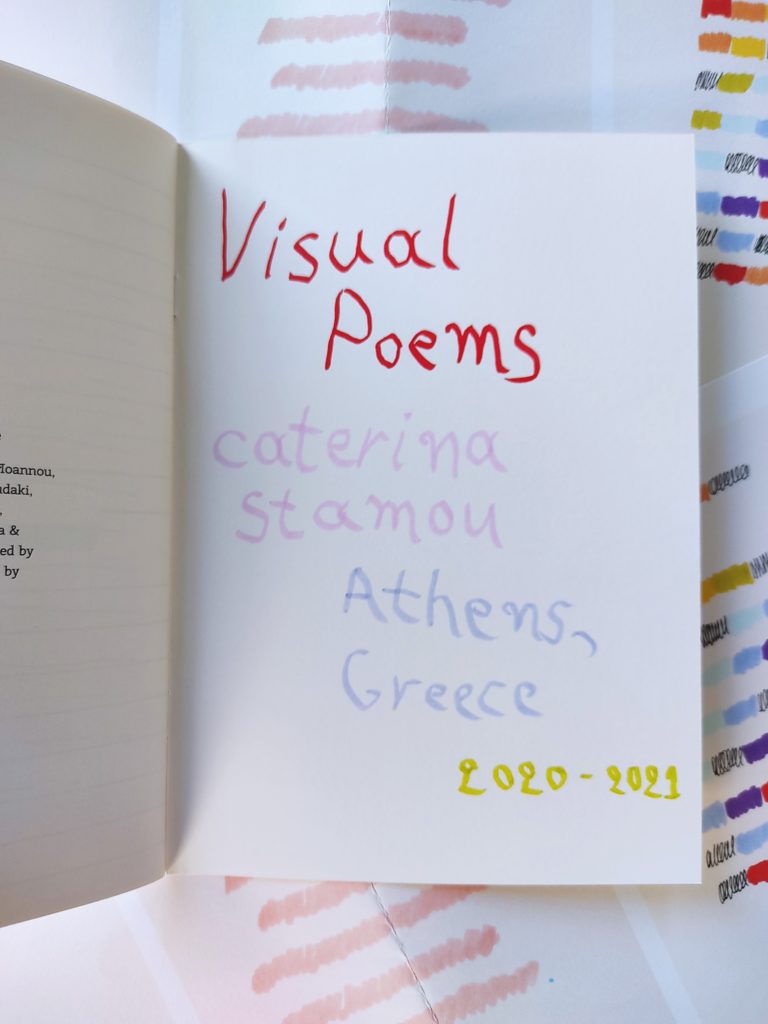 Ioannou,
udaki,
a &
ed by
by
Visual
Poems
caterina
stamou
Athens,
Greece
2020-2021